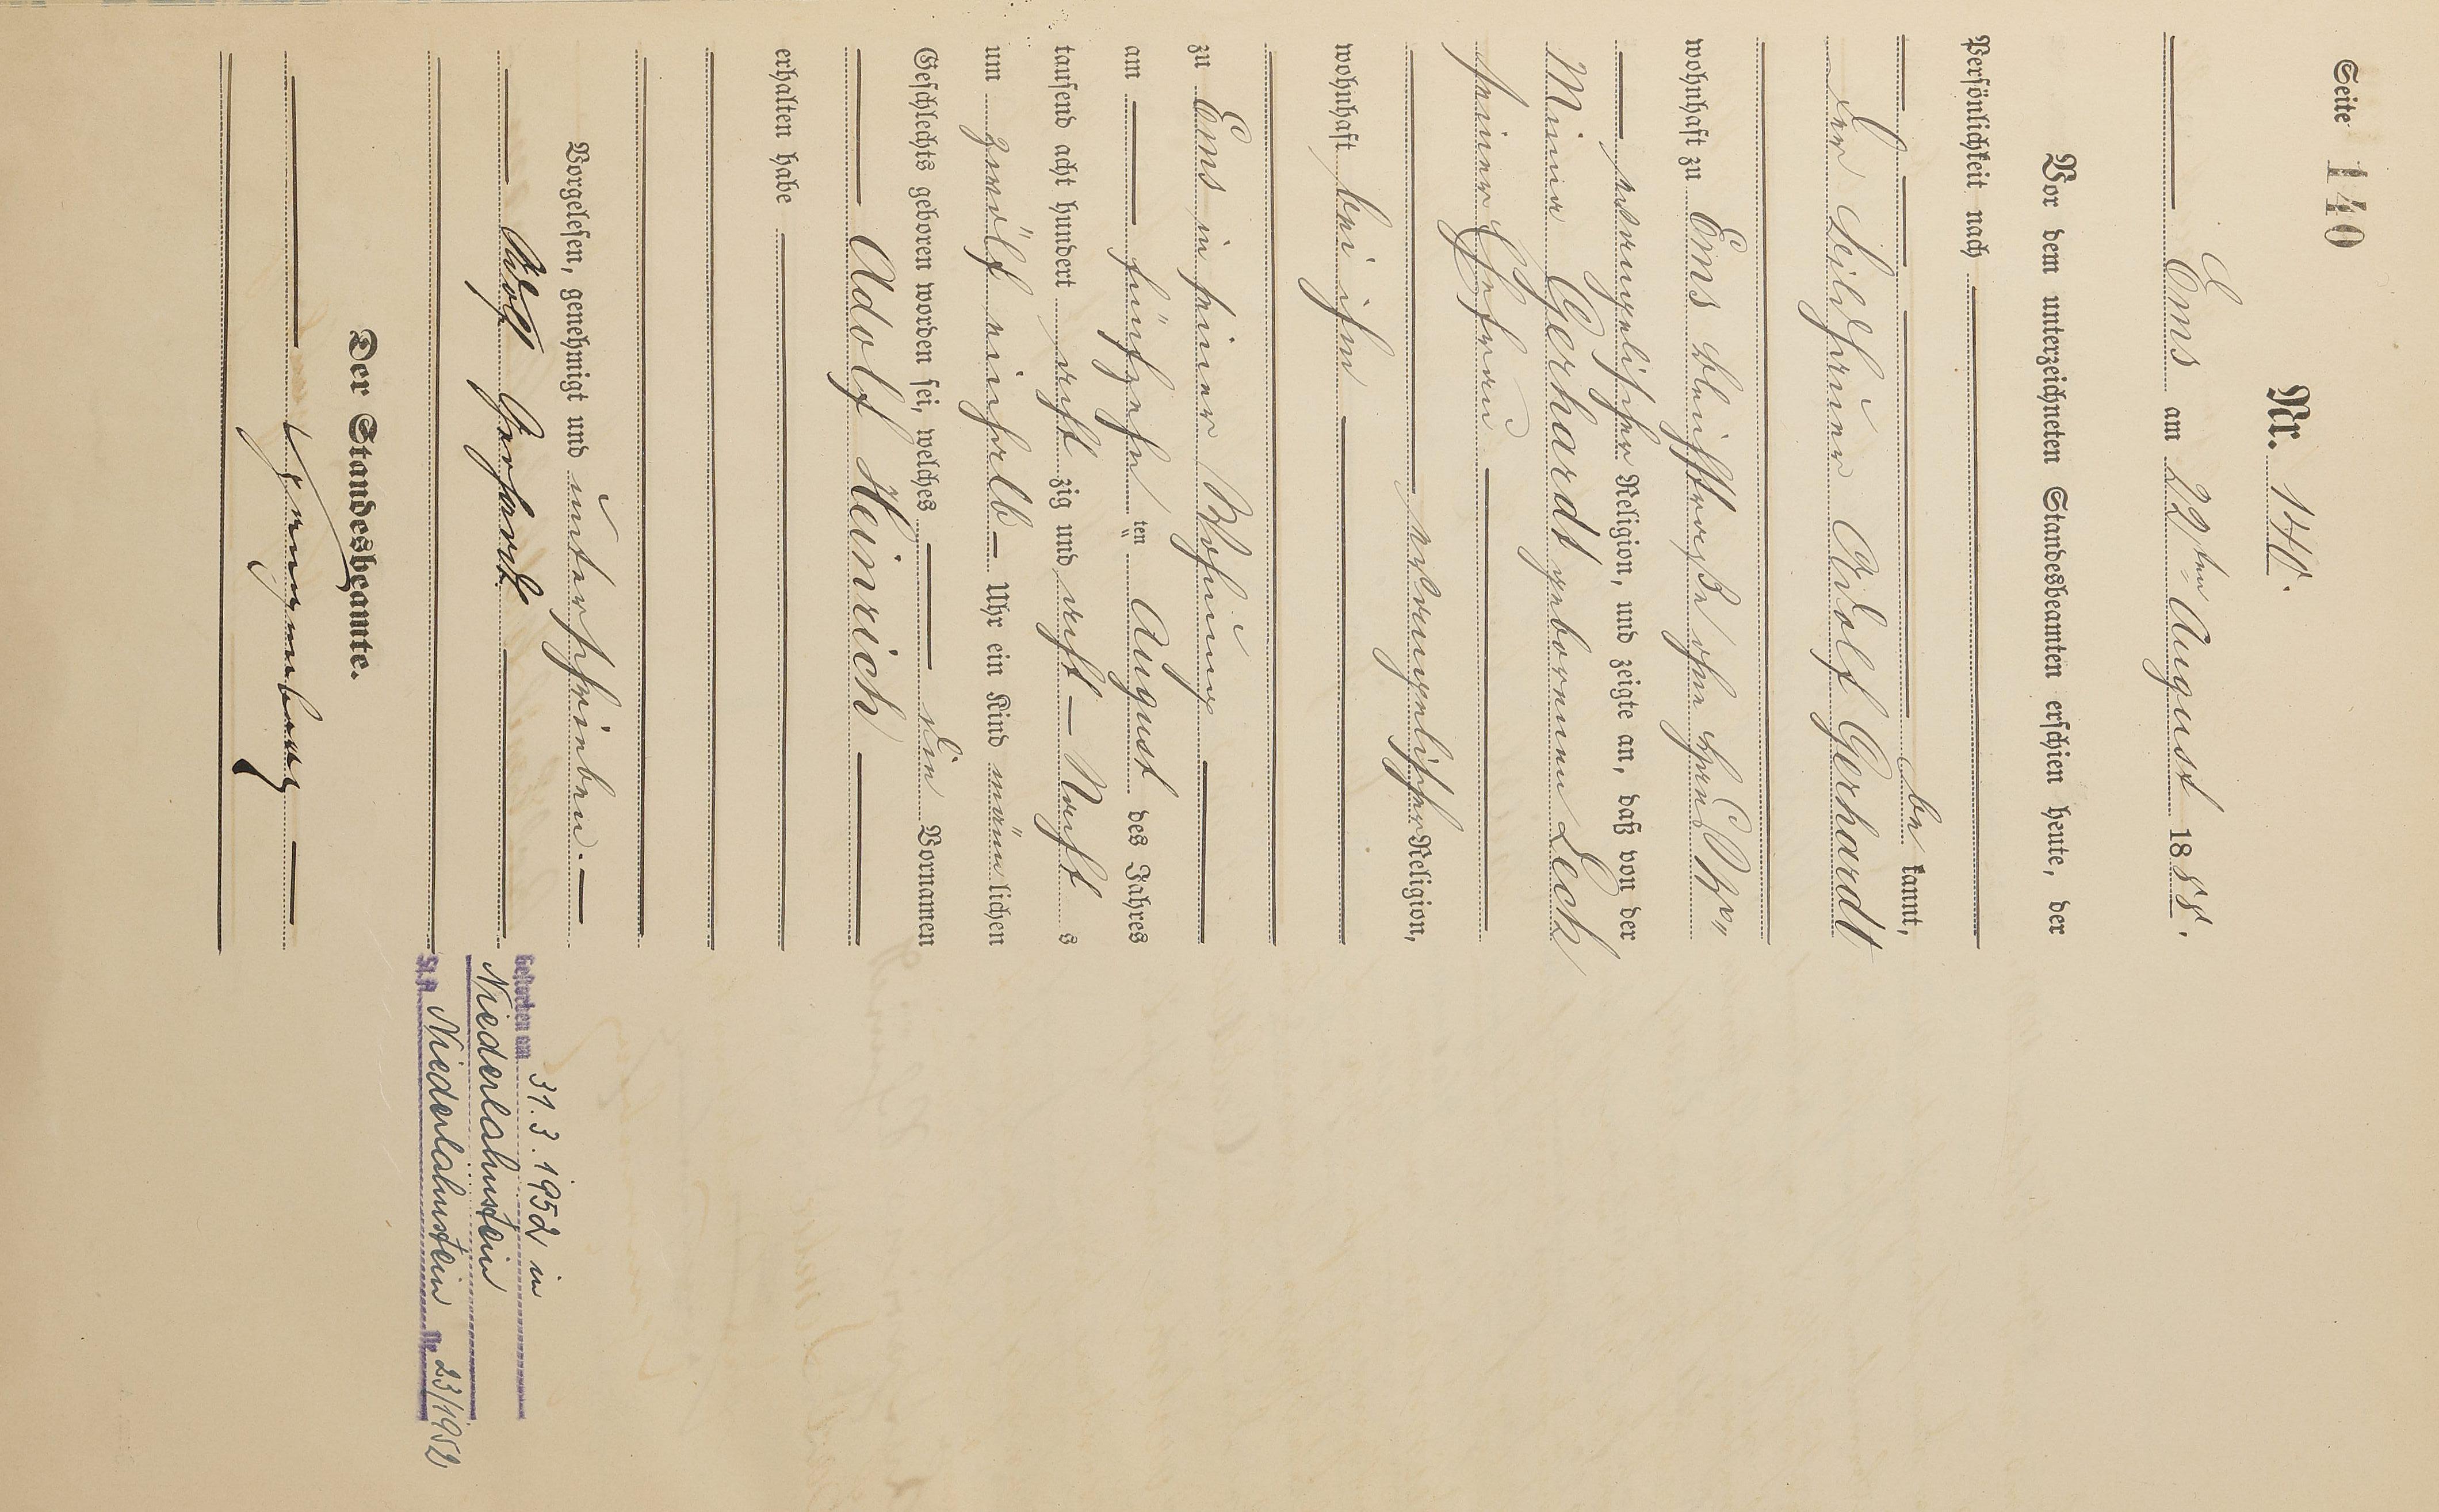 Seite 140
Nr. 140.
Ems am 22ten August 1888.
Vor dem unterzeichneten Standesbeamten erschien heute, der
Persönlichkeit nach
be kannt,
der Adolf Gerhardt
wohnhaft zu Ems Bleichstraße ohne
evangelischer Religion, und zeigte an, daß von der
Mina Gerhardt geborenen Leck
seiner Ehefrau
evangelischer Religion,
wohnhaft bei ihm
zu Ems in seiner Wohnung
am fünfzehn ten August des Jahres
tausend acht hundert acht zig und acht Nacht s
um zwölf einhalb Uhr ein Kind männ lichen
Geschlechts geboren worden sei, welches die Vornamen
Adolf Heinrich
erhalten habe
Vorgelesen, genehmigt und unterschrieben.
Adolf Gerhardt
Der Standesbeamte.
Gestorben am 31.3.1952 in
Niederlahnstein
St.A. Niederlahnstein Nr. 23/1952